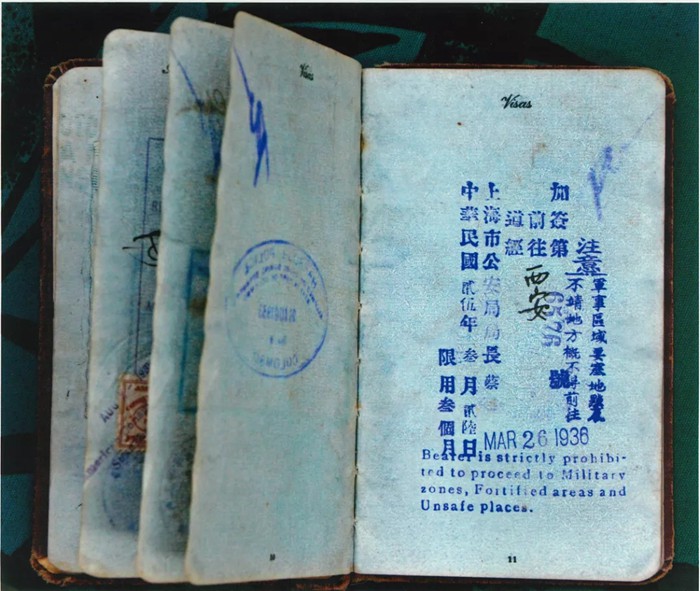 Visas
COLOMBO
9
Visas
注意
軍事區域要塞地
不靖地方概不得前往
加簽第6576號
前往西安
道經
上海市公安局局長蔡
中華民國貳伍年叁月貳陸日
限用叁個月
MAR 26 1936
Bearer is strictly prohibi-
ted to proceed to Military
zones, Fortified areas and
Unsafe places.
11